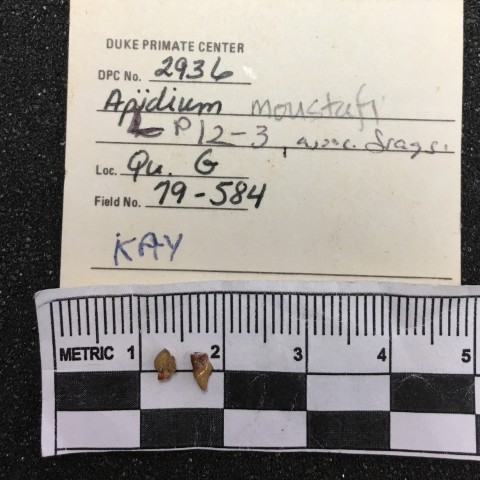 DUKE PRIMATE CENTER
DPC No. 2936
Apidium moustafi
L P 12-3, assoc. frags.
Loc. Qu. G
Field No. 79-584
KAY
METRIC 1 2 3 4 5